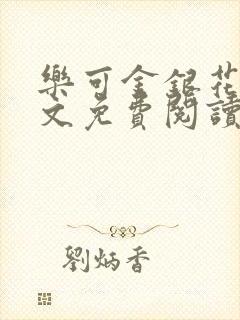 樂可金銀花
文免費閱讀
劉炳香